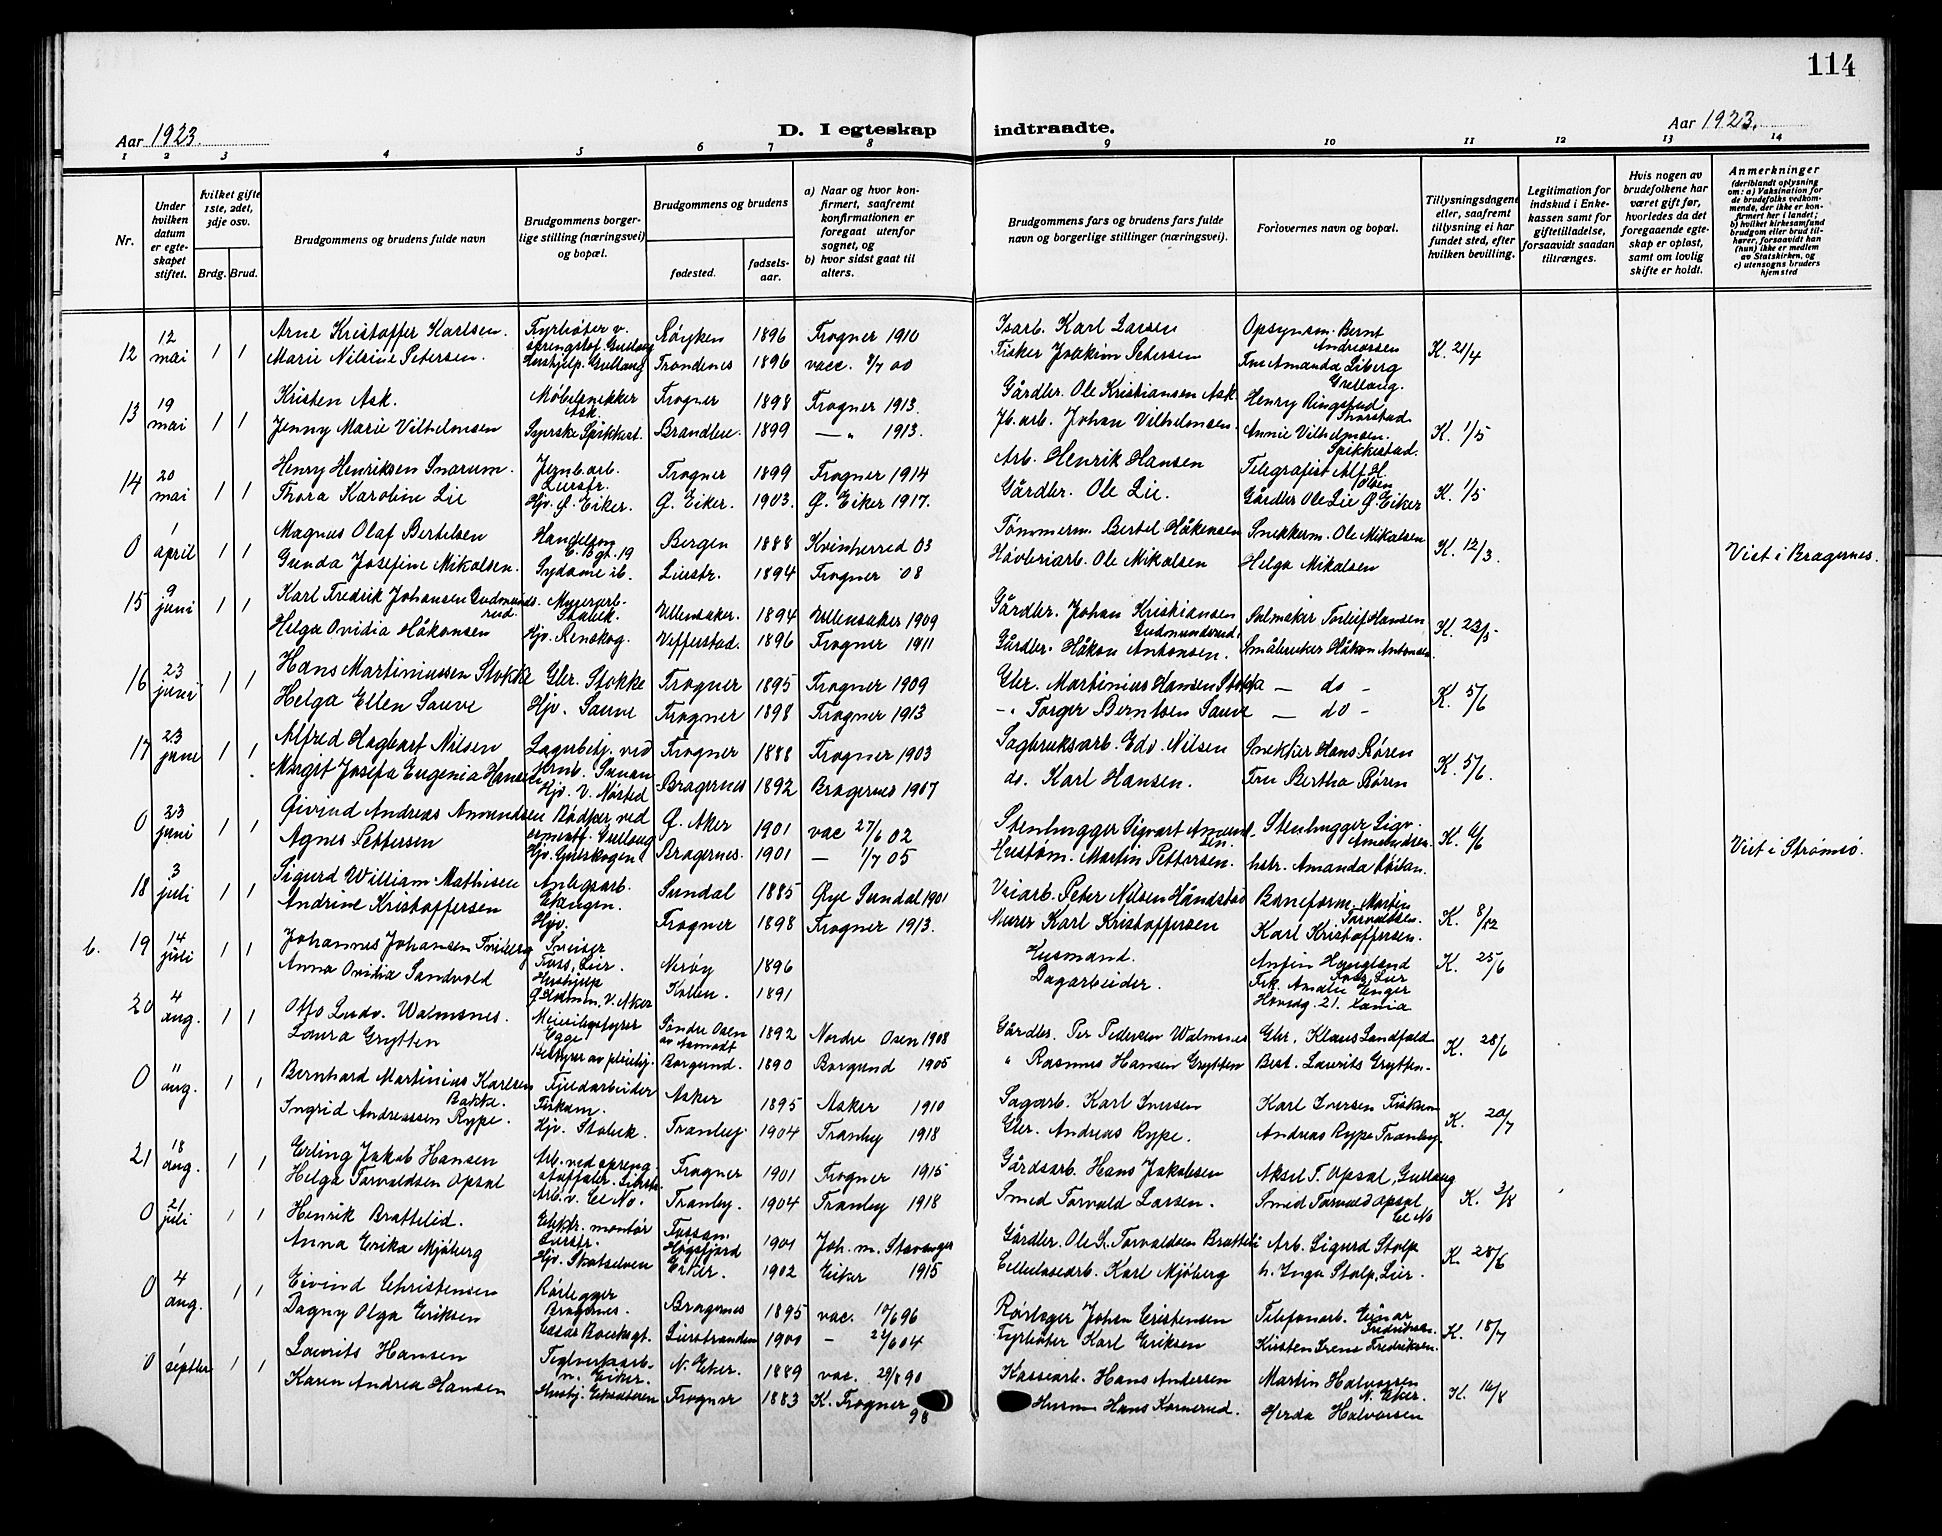 114
Aar 1923.
D. I egteskap indtraadte.
Aar 1923.
1 2 3 4 5 6 7 8 9 10 11 12 13 14
Nr.
Under hvilken datum er egte-skapet stiftet.
hvilket gifte 1ste, 2det, 3dje osv.
Brdg. Brud.
Brudgommens og brudens fulde navn
Brudgommens borger-lige stilling (næringsvei) og bopæl.
Brudgommens og brudens
fødested.
fødsels-aar.
a) Naar og hvor kon-firmert, saafremt konfirmationen er foregaat utenfor sognet, og
b) hvor sidst gaat til alters.
Brudgommens fars og brudens fars fulde navn og borgerlige stillinger (næringsvei).
Forlovernes navn og bopæl.
Tillysningsdagene eller, saafremt tillysning ei har fundet sted, efter hvilken bevilling.
Legitimation for indskud i Enke-kassen samt for giftetilladelse, forsaavidt saadan tiltrænges.
Hvis nogen av brudefolkene har været gift før, hvorledes da det foregaaende egte-skap er opløst, samt om lovlig skifte er holdt.
Anmerkninger
(deriblandt oplysning om: a) Vaksination for de brudefolks vedkom-mende, der ikke er kon-firmert her i landet; b) hvilket kirkesamfund brudgom eller brud til-hører, forsaavidt han (hun) ikke er medlem av Statskirken, og c) utensogns bruders hjemsted
12 12 mai 1 1 Arne Kristoffer Karlsen. Fyrbøter v. Røyken 1896 Frogner 1910 Isarb. Karl Larsen Opsynsm. Bernt Andreassen K. 21/4
Marie Nilsine Petersen. Hushjelp. Gullaug Trondenes 1896 vacc. 8/7 00 Fisker Joakim Petersen Frue Amanda Liberg Gullaug.
13 19 mai 1 1 Kristen Ask. Møbelsnekker Ask. Frogner 1898 Frogner 1913. Gårdbr. Ole Kristiansen Ask. Henry Ringstad K. 1/5
Jenny Marie Vilhelmsen Syerske Spikkest. Brandbu. 1899 — " 1913. Jb. arb. Johan Vilhelmsen. Annie Vilhelmsen. Spikkestad.
14 20 mai 1 1 Henry Henriksen Snarum. Jernb. arb. Lierstr. Frogner 1899 Frogner 1914 Arb. Henrik Hansen Telegrafist Alf H. Olsen K. 1/5
Thora Karoline Lie Hjv. Ø. Eiker. Ø. Eiker. 1903. Ø. Eiker 1917. Gårdbr. Ole Lie. Gårdbr Ole Lie Ø. Eiker
0 1 april 1 1 Magnus Olaf Bertelsen Bergen 1888 Kvinherred 03 Tømmerm. Bertel Håkensen Snekkerm. Ole Mikalsen K. 12/3. Viet i Bragernes.
Gunda Josefine Mikalsen. Sydame ib. Lierstr. 1894 Frogner '08 Høvleriarb. Ole Mikalsen Helga Mikalsen
15 9 juni 1 1 Karl Fredrik Johansen Gudmunds-rud. Ullensaker. 1894 Ullensaker 1909 Gårdbr. Johan Kristiansen Gudmundsrud. Salmaker Torleif Hansen K. 23/5
Helga Ovidia Håkonsen Hjv. Renskog. Vefferstad. 1896 Frogner 1911 Gårdbr. Håkon Antonsen. Småbruker Håkon Antonsen.
16 23 juni 1 1 Hans Martiniussen Stokke Gbr. Stokke Frogner 1895 Frogner 1909 Gbr. Martinius Hansen Stokke — do - K. 5/6
Helga Ellen Sauve Hjv. Sauve Frogner 1898 Frogner 1913 - " Torger Berntsen Sauve — do -
17 23 juni 1 1 Alfred Hagbart Nilsen Lagerbetj. ved Frogner 1888 Frogner 1903 Sagbruksarb. Edv. Nilsen Snekker Hans Røren K. 5/6.
Margit Josefa Eugenia Hansen Hjv. V. Nøsted Bragernes 1892 Bragernes 1907 do. Karl Hansen. Fru Bertha Røren
0 23 juni 1 1 Øivind Andreas Amundsen Ø. Aker 1901 vac 27/6 02 Stenhugger Sigvart Amund-sen. Stenhugger Sigv. Amundsen. K. 6/6 Viet i Strømsø.
Agnes Pettersen Bragernes. 1901 — 1/7 05 Hustøm. Martin Pettersen. hstr. Amanda
18 3 juli 1 1 Sigurd William Mathisen Anlegsarb. Sundal 1885 Øvre Sundal 1901 Veiarb. Peter Nilsen Håndstad Baneform. Martin Torvaldsen. K. 8/12
Andrine Kristoffersen Hjv. Frogner 1898 Frogner 1913. Murer Karl Kristoffersen Karl Kristoffersen.
b. 19 14 juli 1 1 Johannes Johansen Friberg Foss, Lier. Nerøy 1896 Husmand. Anfin Haugland Foss, Lier K. 25/6
Anna Ovidia Sandvold Hushjelp V. Aker Kollen. 1891 Dagarbeider. Frk. Amalie Enger
20 4 aug. 1 1 Otto Ludv. Walmsnes. Meieribestyrer Egge Søndre Osen 1892 Nordre Osen 1908 Gårdbr. Per Pedersen Walmsnes Gbr. Klaus Landfald K. 28/6
Laura Grytten Bestyrer av pleiehj. Borgund. 1890 Borgund 1905 " Rasmus Hansen Grytten Best. Laurits Grytten
0 11 aug. 1 1 Bernhard Martinius Karlsen Bakke. Fjeldarbeider Asker 1895 Asker 1910 Sagarb. Karl Iversen Karl Iversen Fiskum K. 20/7
Ingrid Andreassen Rype. Hjv. Stabek. Tranby. 1904 Tranby 1918 Gbr. Andreas Rype. Andreas Rype Tranby.
21 18 aug. 1 1 Erling Jakob Hansen Arb. ved spreng- Frogner 1901 Frogner 1915 Gårdsarb. Hans Jakobsen Aksel T. Opsal, Gullaug K. 3/8
Helga Torvaldsen Opsal Tranby. 1904 Tranby 1918 Smed Torvald Larsen. Smed Torvald Opsal
0 21 juli 1 1 Henrik Brattelid. Elektr. montør Lierstr. Fossan Høgsfjord 1901 Joh. m. Stavanger Gårdbr. Ole S. Torvaldsen Bratteli Arb. Sigurd Stolp K. 28/6
Anna Erika Mjøberg Hjv. Skotselven Eiker. 1902 Eiker 1915 Cellulosearb. Karl Mjøberg h. Inga Stolp, Lier.
0 4 aug. 1 1 Eivind Christensen Rørlegger Bragernes. Bragernes 1895 vac. 10/6 96 Rørlegger Johan Cristensen Telefonarb. Einar Fredriksen. K. 18/7
Dagny Olga Eriksen Lierstranden 1900 — 27/6 04 Fyrbøter Karl Eriksen Kirsten Irene Fredriksen.
0 1 septbr 1 1 Laurits Hansen Teglverksarb. N. Eiker. N. Eiker. 1889 vac. 29/8 90 Kassearb. Hans Andersen Martin Halvorsen N. Eiker. K. 14/8
Karen Andrea Hansen Frogner 1883 K. Frogner 98 Husm Hans Kornerud. Herda Halvorsen